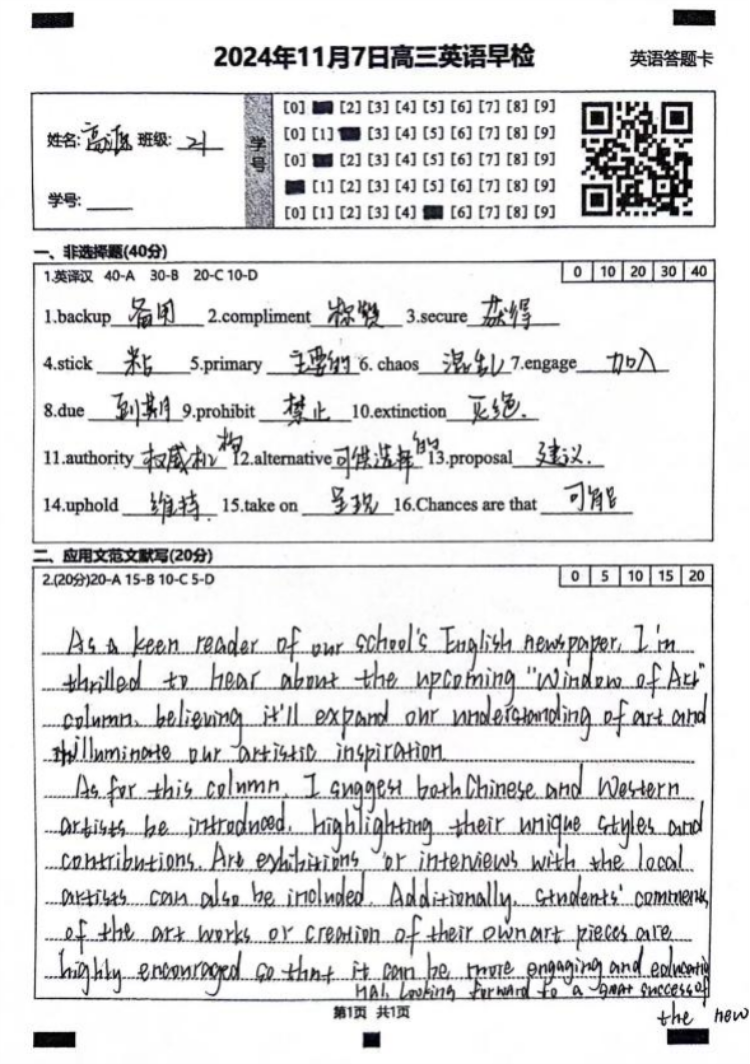 2024年11月7日高三英语早检
英语答题卡
姓名: 高 班级: 21
学号:
学号
[0] [2] [3] [4] [5] [6] [7] [8] [9]
[0] [1] [3] [4] [5] [6] [7] [8] [9]
[0] [2] [3] [4] [5] [6] [7] [8] [9]
[1] [2] [3] [4] [5] [6] [7] [8] [9]
[0] [1] [2] [3] [4] [6] [7] [8] [9]
一、非选择题(40分)
1.英译汉 40-A 30-B 20-C 10-D
0 10 20 30 40
1.backup 备用 2.compliment 称赞 3.secure 获得
4.stick 粘 5.primary 主要的 6. chaos 混乱 7.engage 加入
8.due 到期 9.prohibit 禁止 10.extinction 灭绝.
11.authority 权威机构 12.alternative 可供选择的 13.proposal 建议.
14.uphold 维持. 15.take on 呈现 16.Chances are that 可能
二、应用文范文默写(20分)
2.(20分)20-A 15-B 10-C 5-D
0 5 10 15 20
As a keen reader of our school's English newspaper, I'm
thrilled to hear about the upcoming "Window of Art"
column, believing it'll expand our understanding of art and
illuminate our artistic inspiration.
As for this column, I suggest both Chinese and Western
artists be introduced, highlighting their unique styles and
contributions. Art exhibitions or interviews with the local
artists can also be included. Additionally, students' comments
of the art works or creation of their own art pieces are
highly encouraged so that it can be more engaging and educatio
nal. Looking forward to a great success of
the new
第1页 共1页